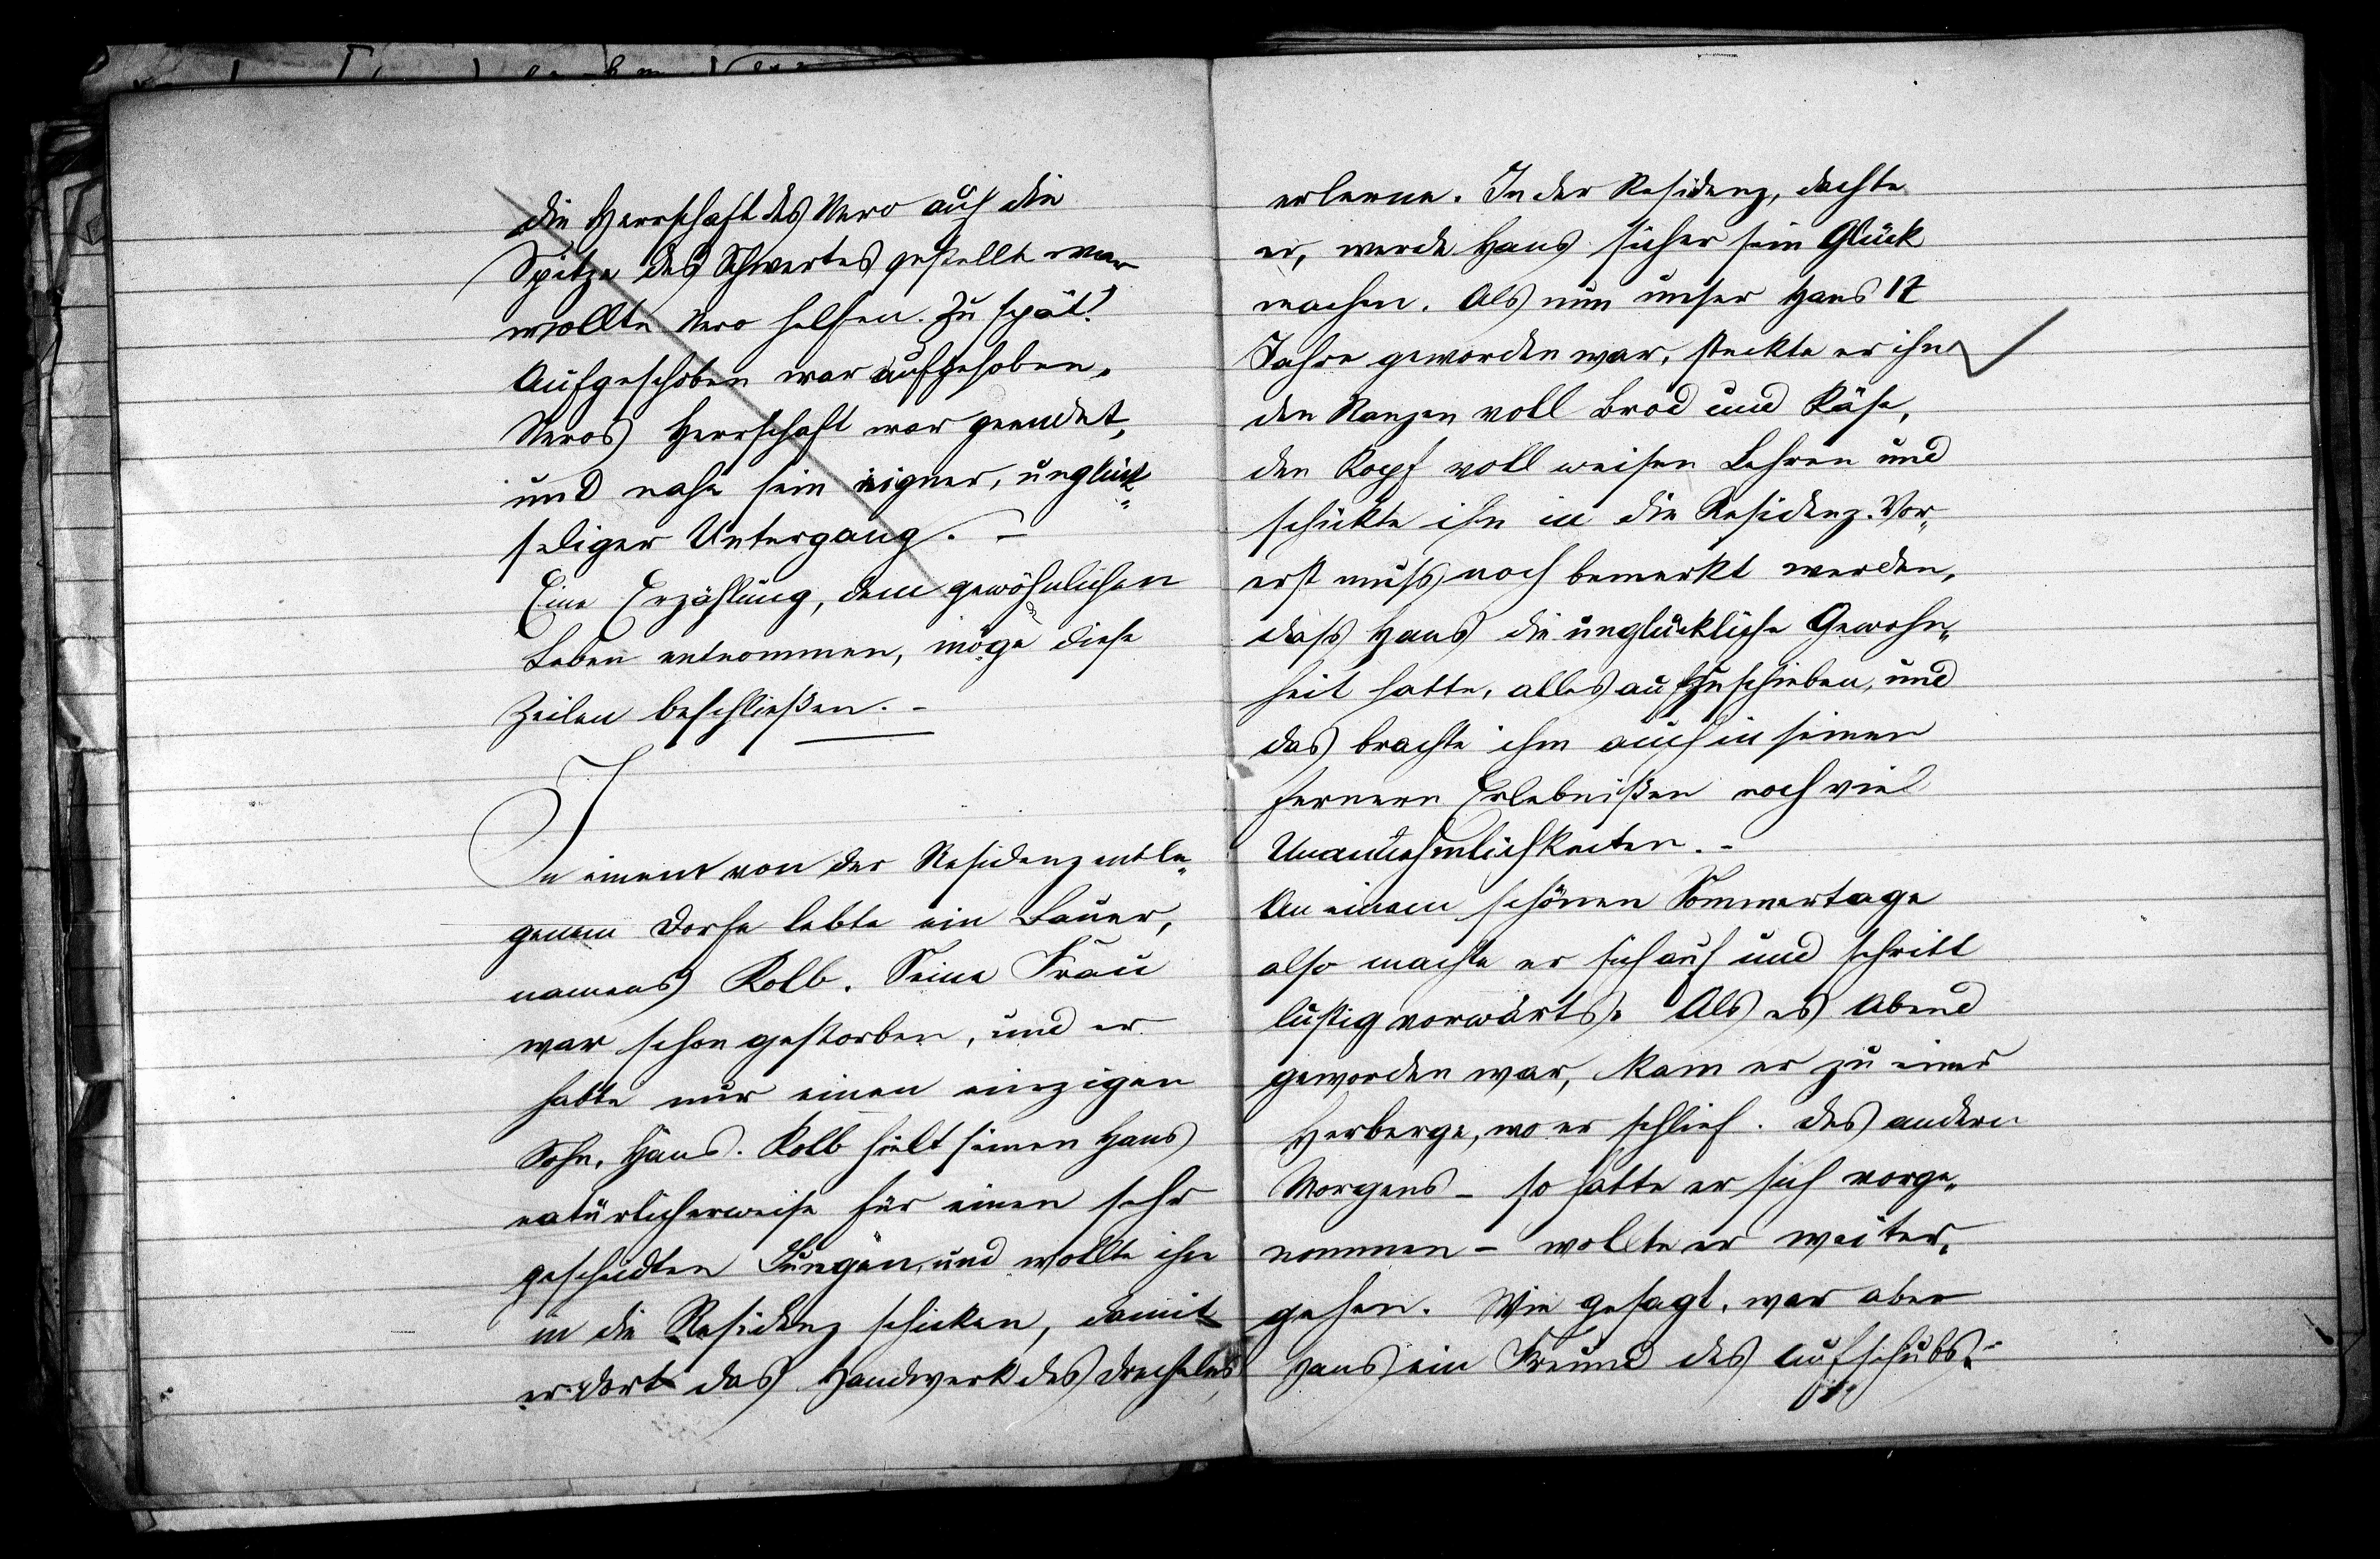 die Herrschaft des Nero auf die
Spitze des Schwertes gestellt war
wollte Nero helfen. Zu spät!
Aufgeschoben war aufgehoben.
Neros Herrschaft war geendet,
und nahe sein eigner, unglück„
seliger Untergang. –
Eine Erzählung, dem gewöhnlichen
Leben entnommen, möge diese
Zeilen beschließen. –
In einem von der Residenz entle„
genem Dorfe lebte ein Bauer,
namens Kolb. Seine Frau
war schon gestorben, und er
hatte nur einen einzigen
Sohn, Hans. Kolb hielt seinen Hans
natürlicherweise für einen sehr
gescheidten Jungen, und wollte ihn
in die Residenz schicken, damit
er dort das Handwerk des Drechslers
erlerne. In der Residenz, dachte
er, werde Hans sicher sein Glück
machen. Als nun unser Hans 17
Jahre geworden war, steckte er ihm
den Ranzen voll Brod und Käse,
den Kopf voll weisen Lehren und
schickte ihn in die Residenz. Vor„
erst muss noch bemerkt werden,
dass Hans die unglückliche Gewohn„
heit hatte, alles aufzuschieben, und
das brachte ihm auch in seinen
fernern Erlebnißen noch viel
Unannehmlichkeiten. –
An einem schönen Sommertage
also machte er sich auf und schritt
lustig vorwärts. Als es Abend
geworden war, kam er zu einer
Herberge, wo er schlief. Des andern
Morgens – so hatte er sich vorge„
nommen – wollte er weiter„
gehen. Wie gesagt, war aber
Hans ein Freund des Aufschubs. –